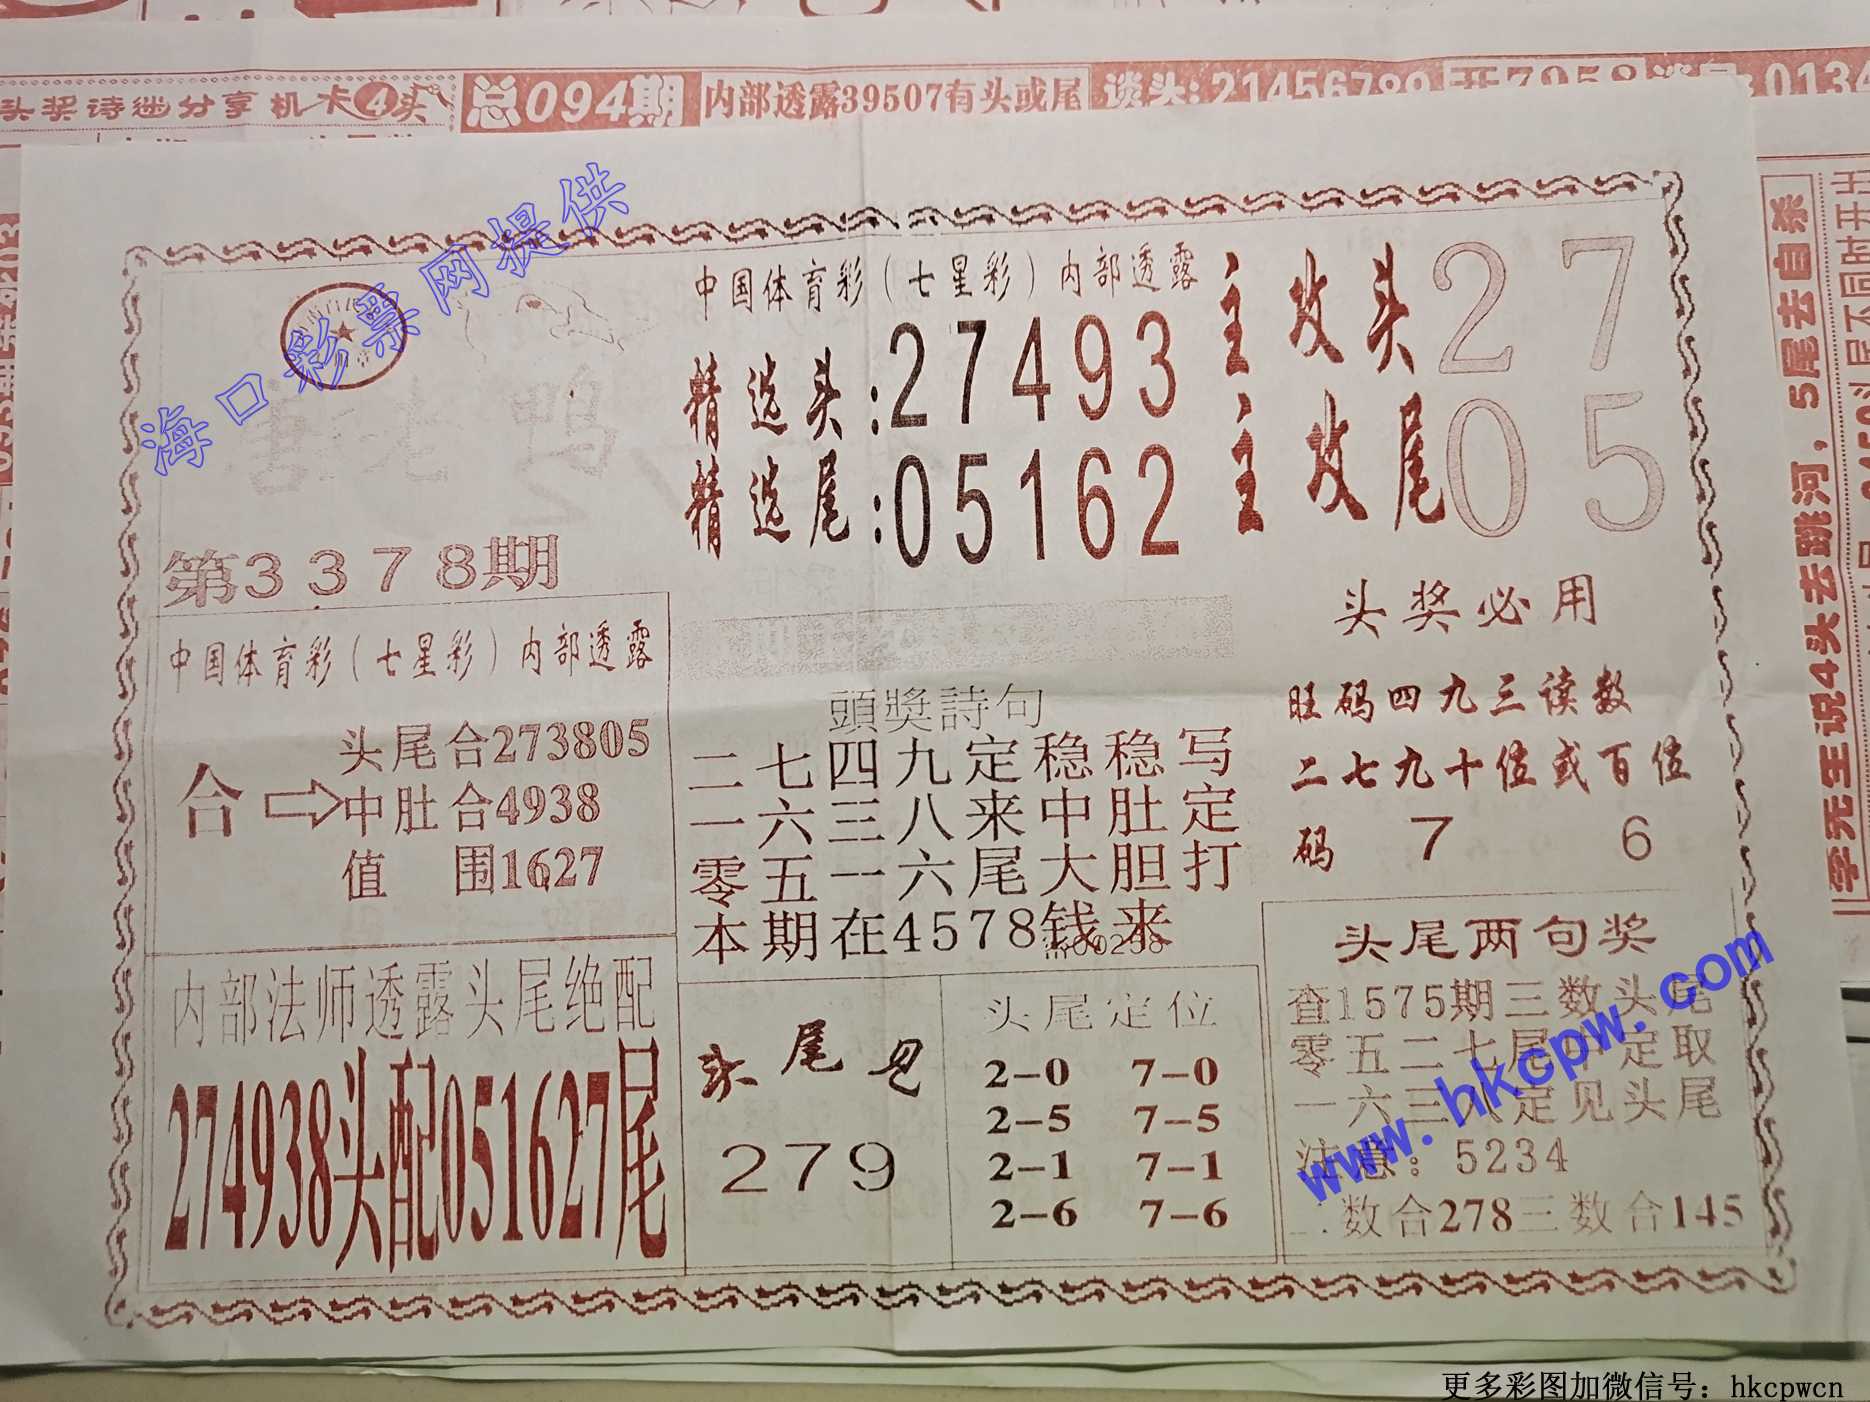 头奖诗谜分享机卡4头
总094期
内部透露39507有头或尾
海口彩票网提供
中国体育彩(七星彩)内部透露
精选头:27493
精选尾:05162
主攻头27
主攻尾05
第3378期
中国体育彩(七星彩)内部透露
合
头尾合273805
中肚合4938
值 围1627
頭獎詩句
二七四九定稳稳写
一六三八来中肚定
零五一六尾大胆打
本期在4578钱来
头奖必用
旺码四九三读数
二七九十位或百位
码 7 6
内部法师透露头尾绝配
274938头配051627尾
头尾见
279
头尾定位
2-0 7-0
2-5 7-5
2-1 7-1
2-6 7-6
头尾两句奖
查1575期三数头尾
零五二七尾中定取
一六三八定见头尾
注意:5234
二数合278三数合145
李先生说4头去跳河,5尾去自杀
www.hkcpw.com
更多彩图加微信号:hkcpwcn